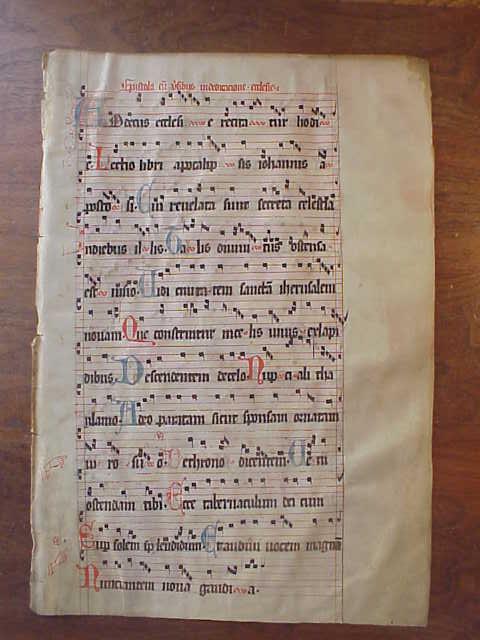 Epistola cū v̄sibus in dedicacione ecclesie
AD decus ecclesi e recita tur hodi
e Lectio libri apocalip sis iohannis a
posto li Cui reuelata sunt secreta celestia
In diebus il lis Ta lis diuini tus ostensa
est uisio Uidi ciuita tem sanctā iherusalem
nouam Que construitur in ce lis uiuis ex lapi
dibus Descendentem de celo Nup ci ali tha
lamo A deo paratam sicut sponsam ornatam
ui ro su o de throno dicentem Ce ni
ostendam tibi Ecce tabernaculum dei cum
Sup solem splendidum Et audiui uocem magnā
Nunciantem noua gaudi a